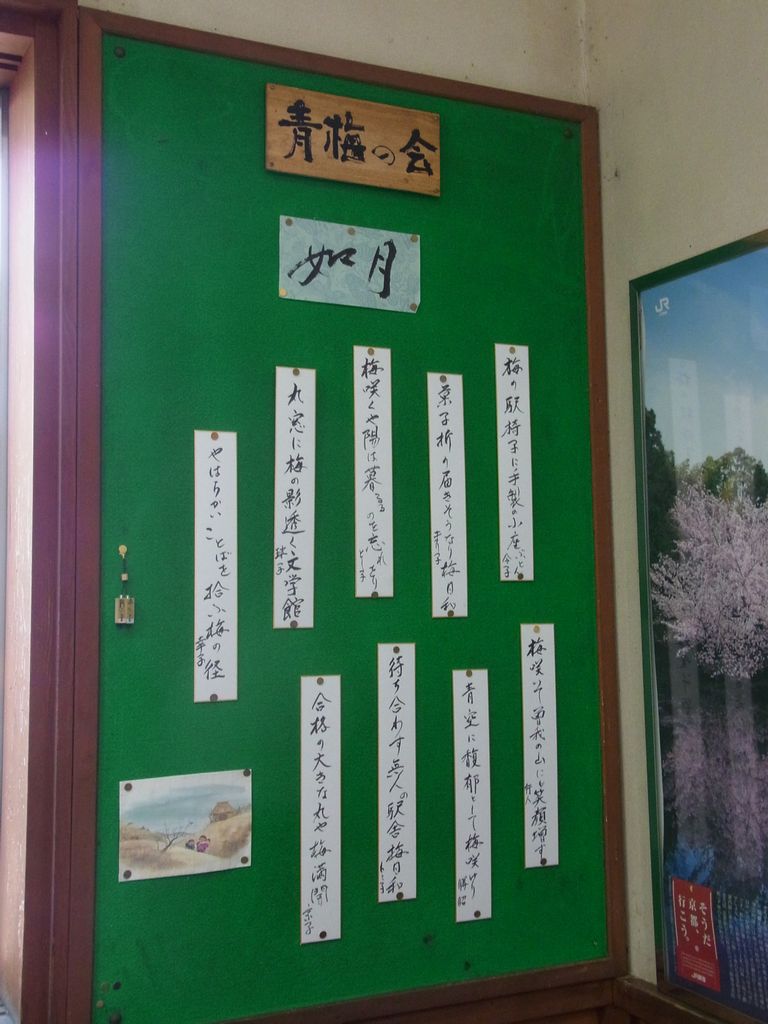 青梅の会
如月
梅の駅椅子に手製の小座ぶとん
今子
菓子折の届きそうなり梅日和
幸子
梅咲くや陽は暮るるのを忘れをり
とし子
丸窓に梅の影透く文学館
珠子
やはらかいことばを拾ふ梅の径
幸子
梅咲そ曽我の山にも笑顔増す
青空に馥郁として梅咲けり
勝昭
待ち合わす無人の駅舎梅日和
合格の大きな丸や梅満開
京子
JR
そうだ
京都、
行こう。